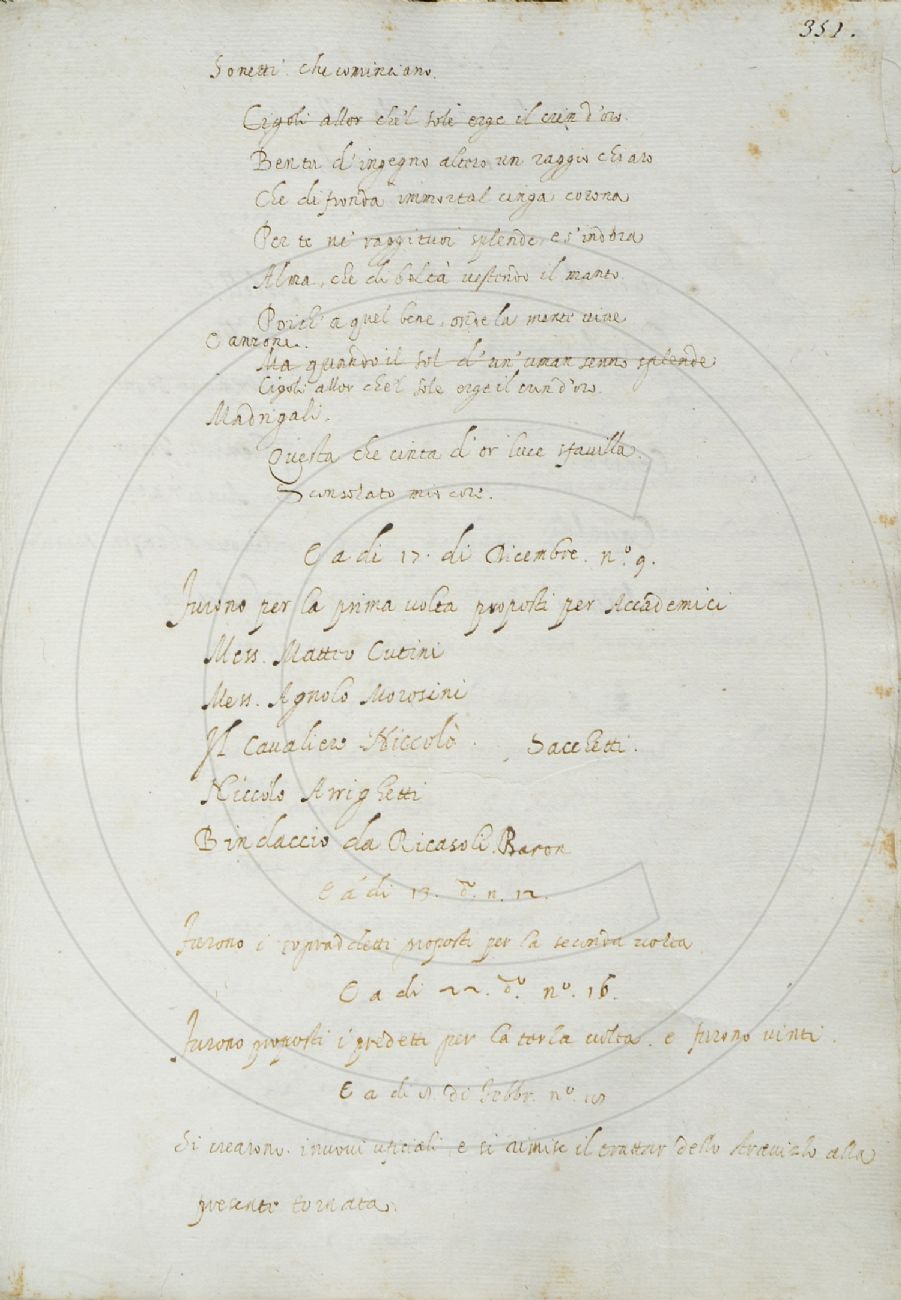 351.
Sonetti che cominciano.
Cigoli allor che'l sole erge il crin d'oro.
Ben tu d'ingegno altero un raggio chiaro
Che di fronda immortal cinga corona
Per te ne' raggi tuoi splende, e s'indora
Alma, che di beltà vestendo il manto
Poich' a quel bene, onde la mente vive
Canzone.
Ma quando il sol d'un'uman senno splende
Cigoli allor che'l sole erge il crin d'oro.
Madrigali.
Questa che cinta d'or luce sfavilla.
Sconsolato mio core.
E a di 17. di Dicembre. nº. 9.
Furono per la prima volta proposti per Accademici
Mess. Matteo Cutini
Mess. Agnolo Morosini
Il Cavaliero Niccolò Sacchetti.
Niccolo Arrighetti
Bindaccio da Ricasoli Baron
E a di 13. dº. n. 12.
Furono i sopradetti proposti per la seconda volta
E a di 22. dº. nº. 16.
Furono proposti i predetti per la terza volta. e furono vinti.
E a di di Febbr. nº.
Si crearono i nuovi ufiziali, e si rimise il trattar dello alla
presente tornata.